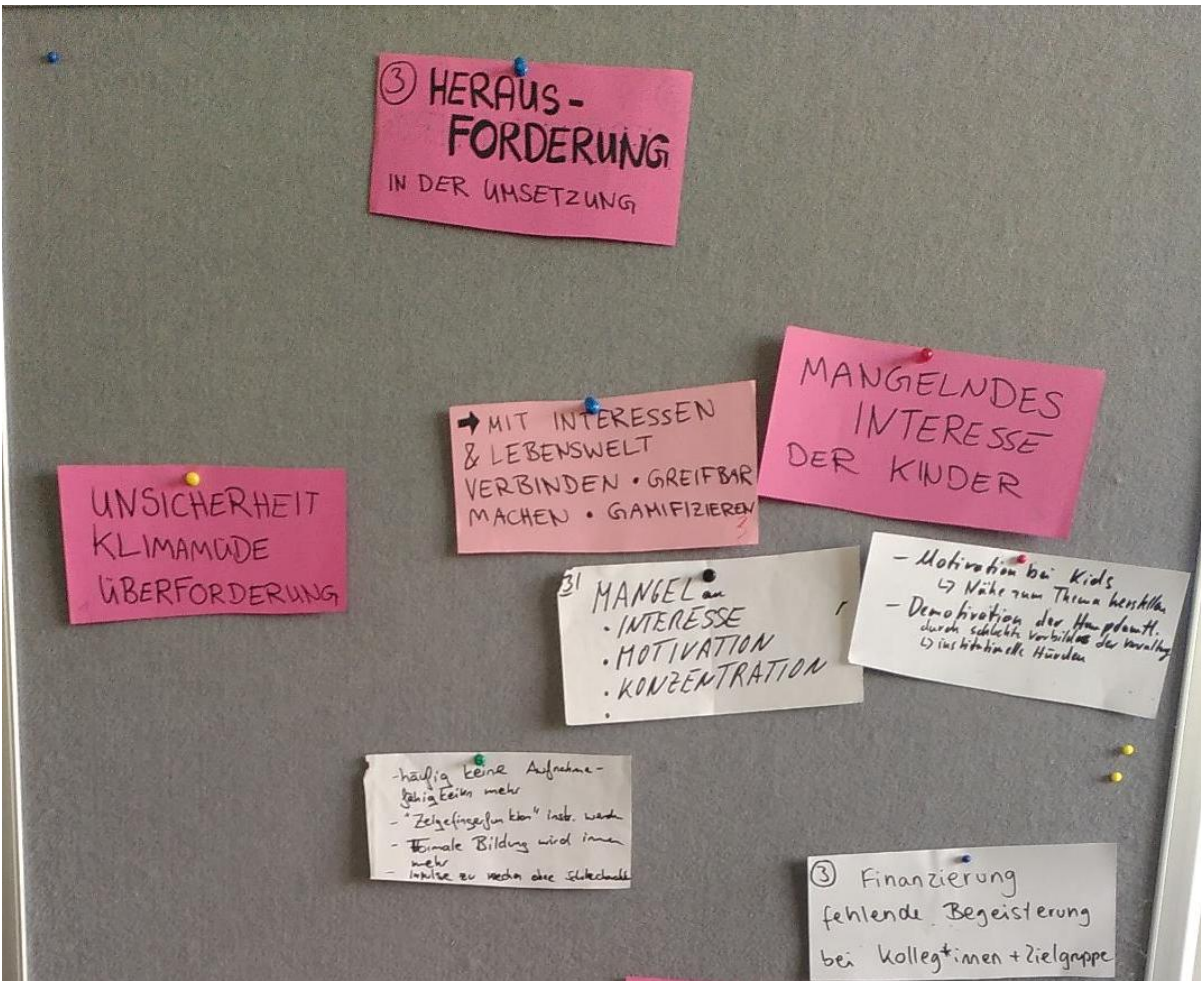 ③ HERAUS-
FORDERUNG
IN DER UMSETZUNG
MANGELNDES
INTERESSE
DER KINDER
➡ MIT INTERESSEN
& LEBENSWELT
VERBINDEN • GREIFBAR
MACHEN • GAMIFIZIEREN
3
UNSICHERHEIT
KLIMAMÜDE
ÜBERFORDERUNG
3! MANGEL an
• INTERESSE
• MOTIVATION
• KONZENTRATION
•
- Motivation bei Kids
↳ Nähe zum Thema herstellen
- Demotivation der Hauptamtl.
durch schlechte Vorbilder der Verwaltung
↳ institutionelle Hürden
- häufig keine Aufnahme-
fähigkeiten mehr
- "Zeigefingerfunktion" instr. werden
- Formale Bildung wird immer
mehr
- Impulse zu ohne
③ Finanzierung
fehlende Begeisterung
bei Kolleg*innen + Zielgruppe